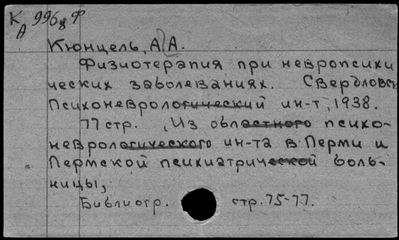 К 996 Ф
А 8
Кюнцель, А А.
Физиотерапия при невропсихи
ческих заболеваниях. Свердловск
Психоневрологический ин-т, 1938.
77 стр. , Из областного психо-
неврологического ин-та в Перми и
Пермской психиатрической боль-
ницы,
Библиогр. стр. 75-77.